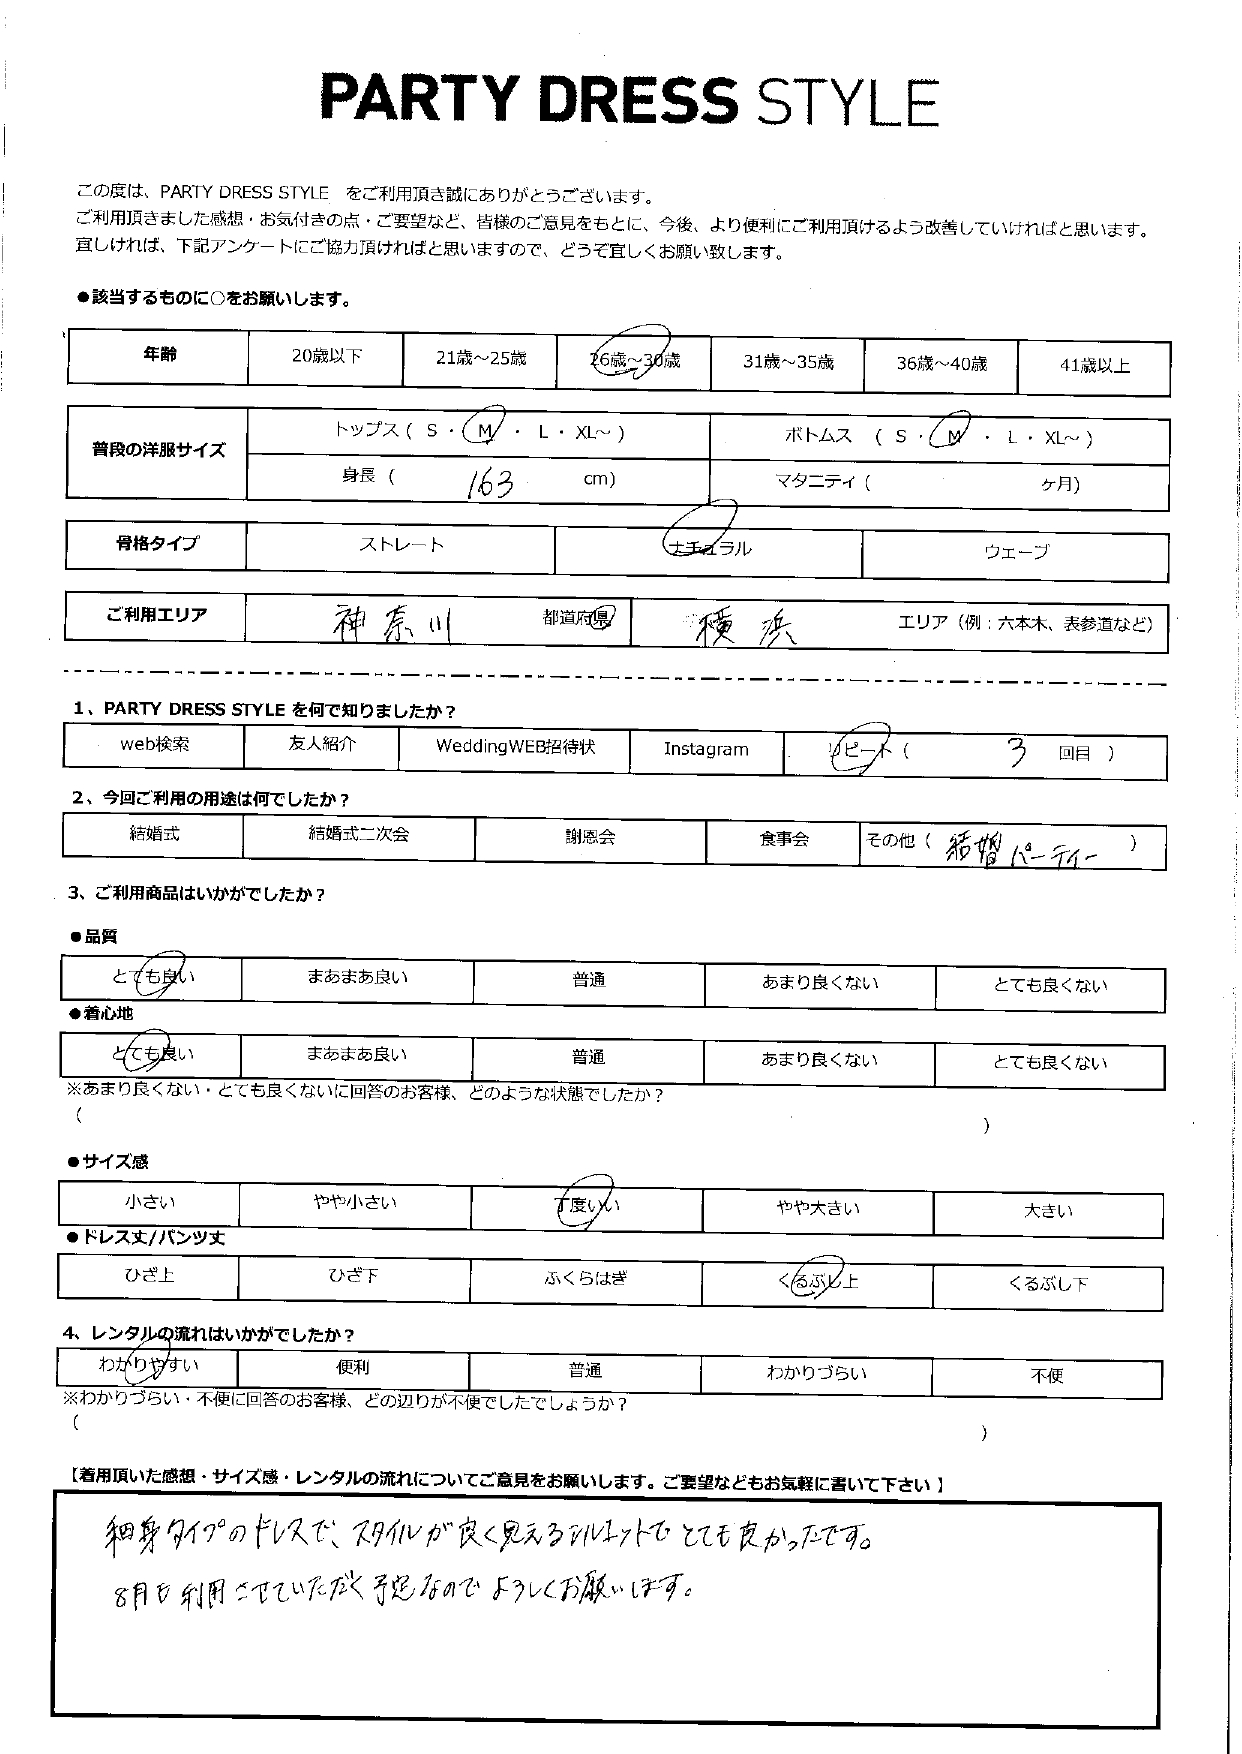 PARTY DRESS STYLE
この度は、PARTY DRESS STYLE をご利用頂き誠にありがとうございます。
ご利用頂きました感想・お気付きの点・ご要望など、皆様のご意見をもとに、今後、より便利にご利用頂けるよう改善していければと思います。
宜しければ、下記アンケートにご協力頂ければと思いますので、どうぞ宜しくお願い致します。
●該当するものに○をお願いします。
年齢 20歳以下 21歳～25歳 26歳～30歳 31歳～35歳 36歳～40歳 41歳以上
普段の洋服サイズ トップス( S ・ M ・ L ・ XL～ ) ボトムス ( S ・ M ・ L ・ XL～ )
身長 ( 163 cm) マタニティ ( ヶ月)
骨格タイプ ストレート ナチュラル ウェーブ
ご利用エリア 神奈川 都道府県 横浜 エリア（例：六本木、表参道など）
1、PARTY DRESS STYLE を何で知りましたか？
web検索 友人紹介 WeddingWEB招待状 Instagram リピート ( 3 回目 )
2、今回ご利用の用途は何でしたか？
結婚式 結婚式二次会 謝恩会 食事会 その他 ( 結婚パーティー )
3、ご利用商品はいかがでしたか？
●品質
とても良い まあまあ良い 普通 あまり良くない とても良くない
●着心地
とても良い まあまあ良い 普通 あまり良くない とても良くない
※あまり良くない・とても良くないに回答のお客様、どのような状態でしたか？
( )
●サイズ感
小さい やや小さい 丁度いい やや大きい 大きい
●ドレス丈/パンツ丈
ひざ上 ひざ下 ふくらはぎ くるぶし上 くるぶし下
4、レンタルの流れはいかがでしたか？
わかりやすい 便利 普通 わかりづらい 不便
※わかりづらい・不便に回答のお客様、どの辺りが不便でしたでしょうか？
( )
【着用頂いた感想・サイズ感・レンタルの流れについてご意見をお願いします。ご要望などもお気軽に書いて下さい】
細身タイプのドレスで、スタイルが良く見えるシルエットでとても良かったです。
8月も利用させていただく予定なのでよろしくお願いします。